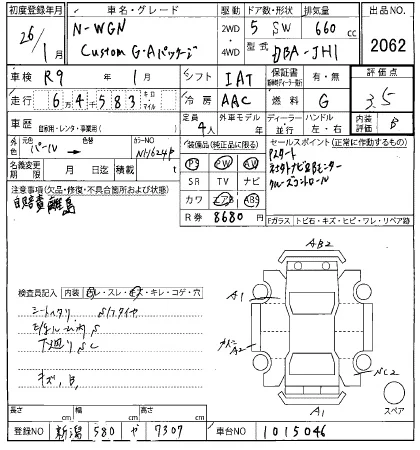 初度登録年月 車名・グレード 駆動 ドア数・形状 排気量 出品NO.
26/1月 N-WGN 2WD 5 SW 660 cc 2062
Custom G・Aパッケージ 4WD 型式 DBA-JH1
車検 R9年 1月 シフト IAT 保証書 有・無 評価点
走行 6万4千583 キロ マイル 冷房 AAC 燃料 G 3.5
車歴 自家用・レンタ・事業用( ) 定員 4人 外車モデル 年 ディーラー・並行 ハンドル 左・右 内装評価 B
外色 元色 パール 色替 カラーNO NH624P 装備品(純正品に限る) セールスポイント(正常に作動するもの)
名義変更期限 月 日迄 積載 t PS PW AW
注意事項(欠品・修復・不具合箇所および状態) SR TV ナビ クルーズコントロール
自賠責離島 カワ エアB ABS
R券 8680円 Fガラス トビ石・キズ・ヒビ・ワレ・リペア跡
AB2
検査員記入 内装 ヨゴレ・スレ・キズ・キレ・コゲ・穴 A1
シートヘタリ
下廻りSC A2
キズ, B,
A1 スペア
長さ cm 幅 cm 高さ cm
登録NO 新潟 580 や 7307 車台NO 1015046